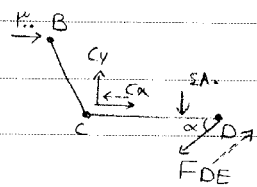 B
Cy
Cx
C
α
D
F DE